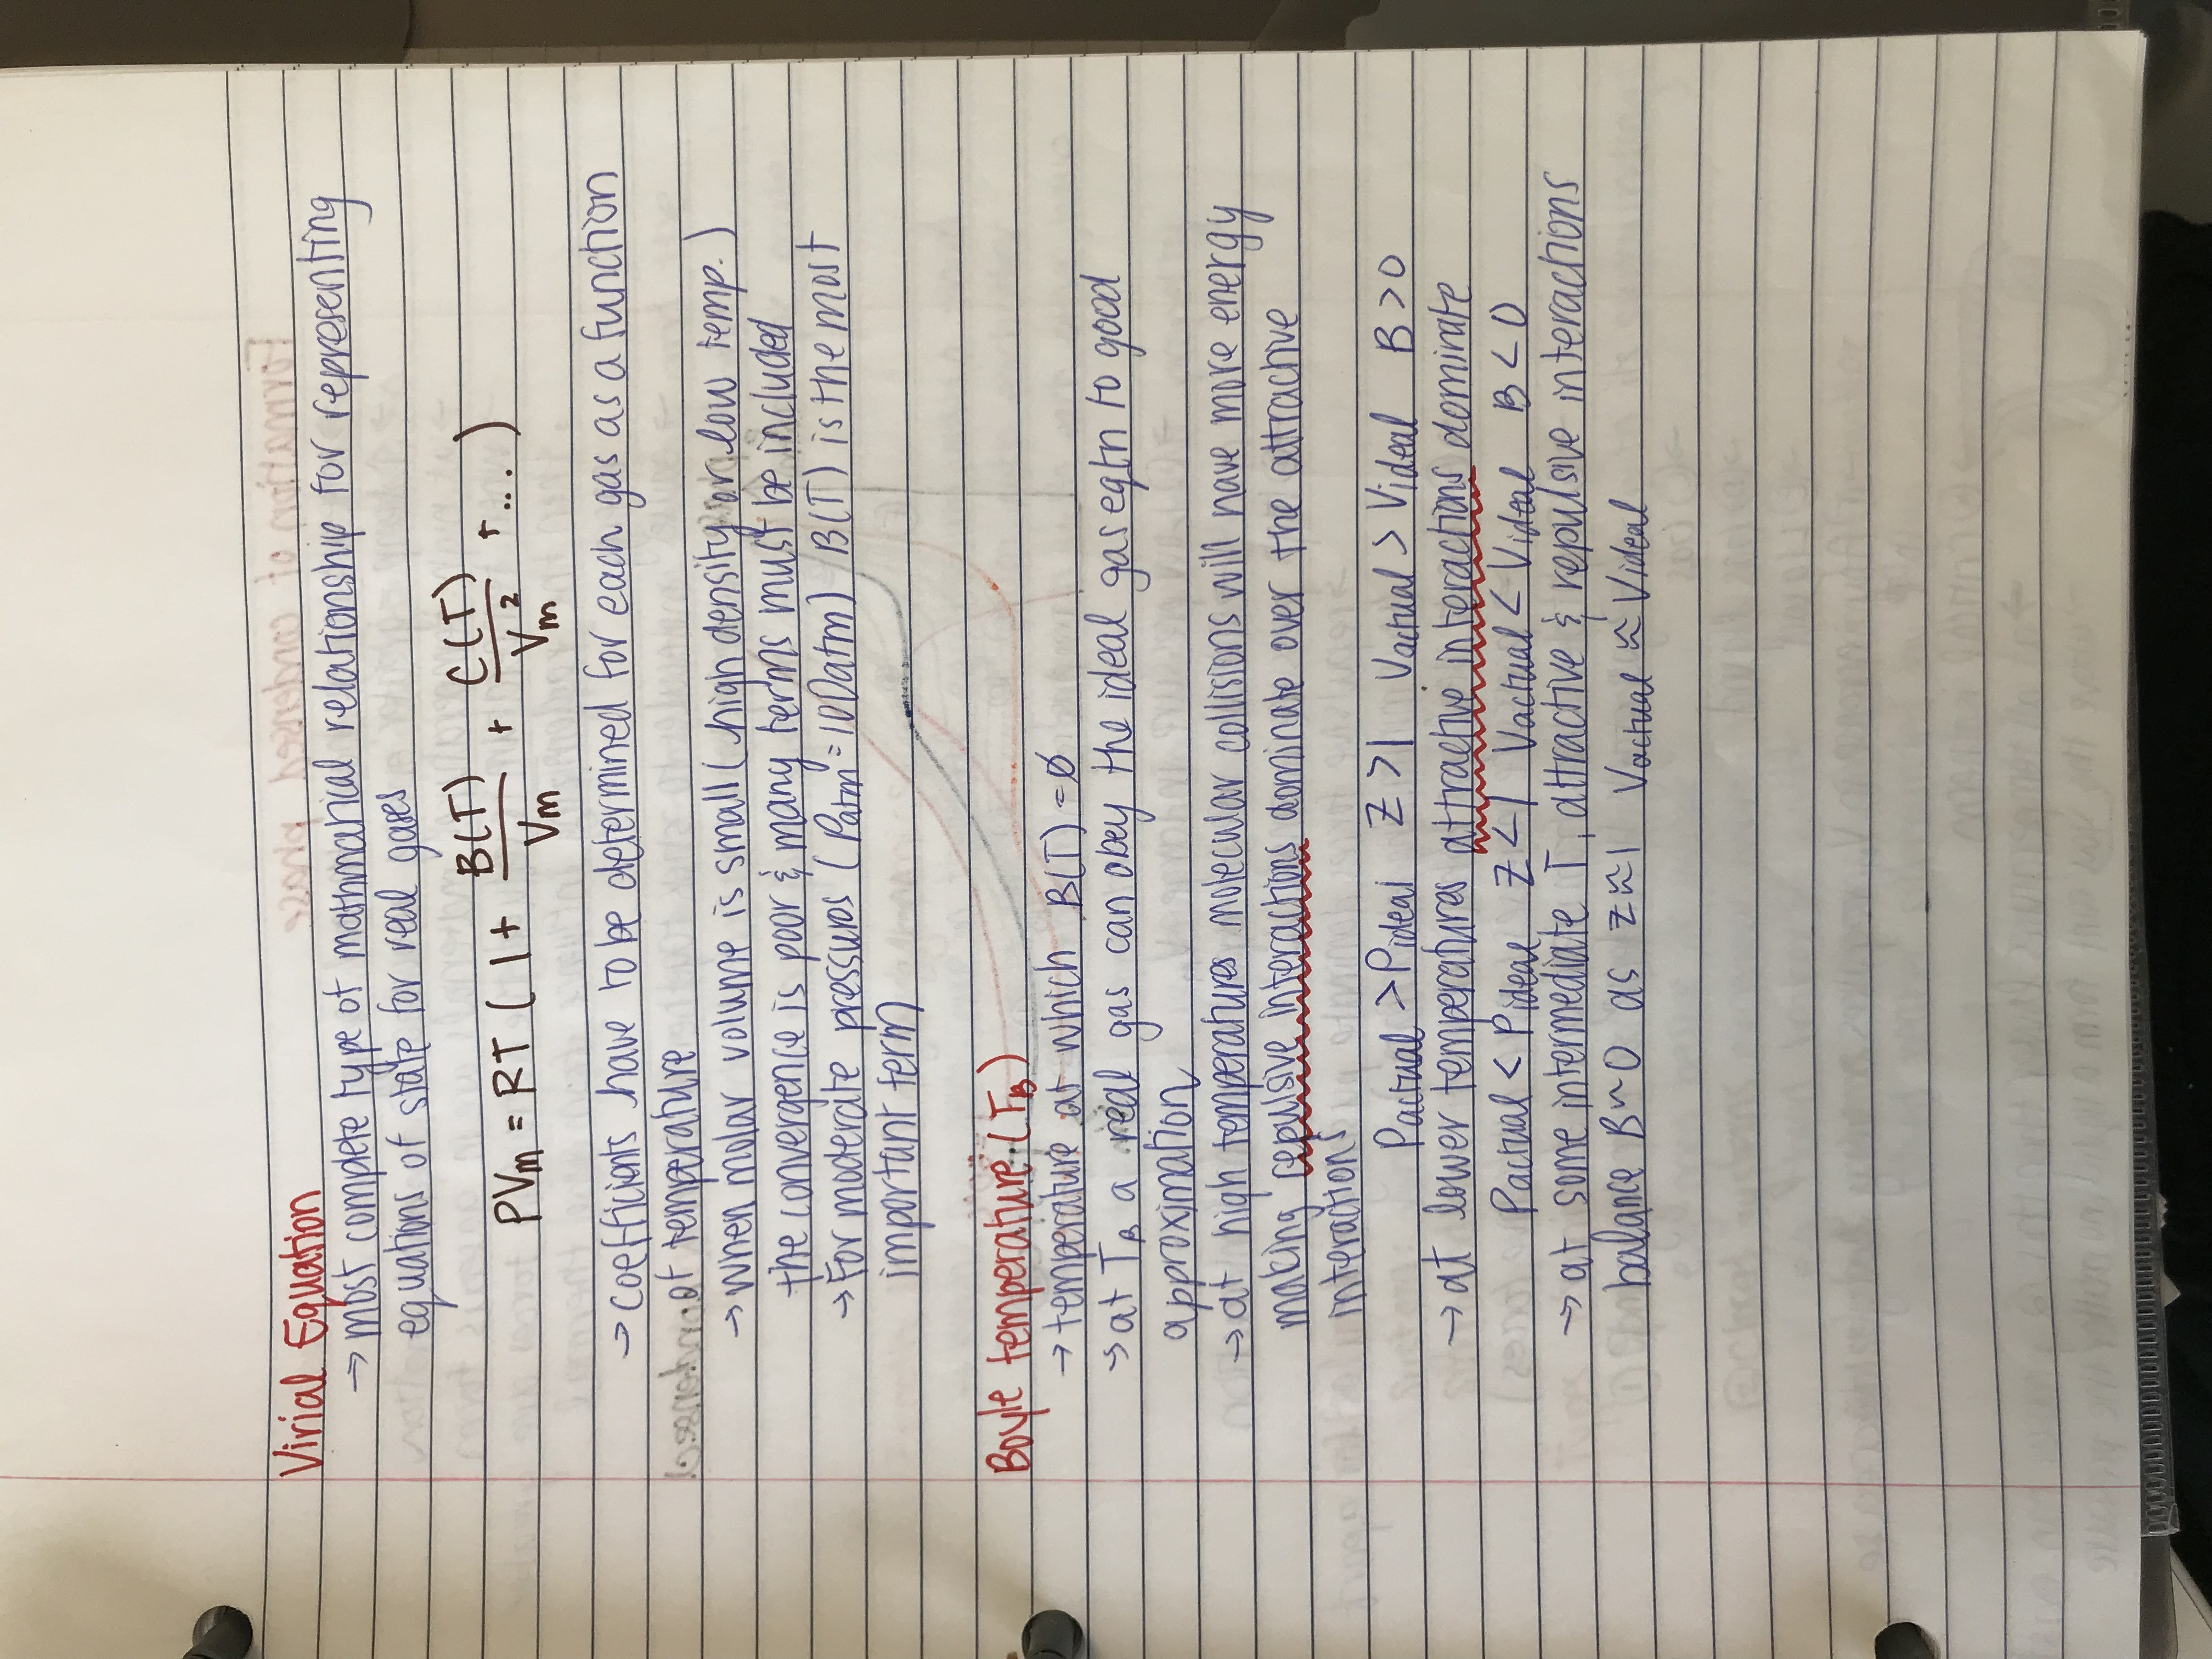 Virial Equation
→ most complete type of mathmatical relationship for representing
equations of state for real gases
PVm = RT (1 + B(T)/Vm + C(T)/Vm² + ...)
→ coefficients have to be determined for each gas as a function
of temperature
→ when molar volume is small (high density or low temp.)
the convergence is poor & many terms must be included
→ For moderate pressures (Patm = 100atm) B(T) is the most
important term
Boyle temperature (TB)
→ temperature at which B(T) = 0
→ at TB a real gas can obey the ideal gas eqtn to good
approximation
→ at high temperatures molecular collisions will have more energy
making repulsive interactions dominate over the attractive
interactions
Pactual > Pideal Z > 1 Vactual > Videal B > 0
→ at lower temperatures attractive interactions dominate
Pactual < Pideal Z < 1 Vactual < Videal B < 0
→ at some intermediate T, attractive & repulsive interactions
balance B ~ 0 as Z ≈ 1 Vactual ≈ Videal